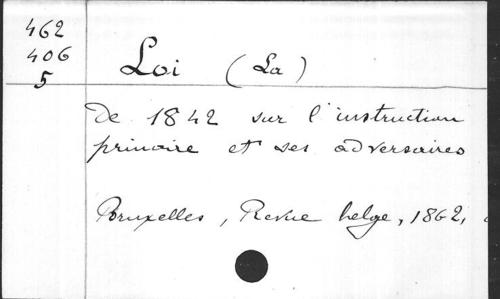 462
406
5
Loi (La)
de 1842 sur l'instruction
primaire et ses adversaires
Bruxelles, Revue belge, 1862,